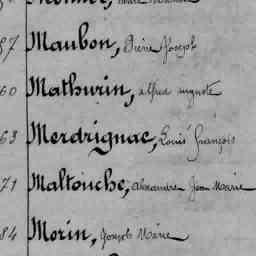 87 Maubon, Pierre Joseph
60 Mathurin, alfred auguste
63 Merdrignac, Louis françois
71 Maltouche, alexandre Jean Marie
84 Morin, Joseph Marie